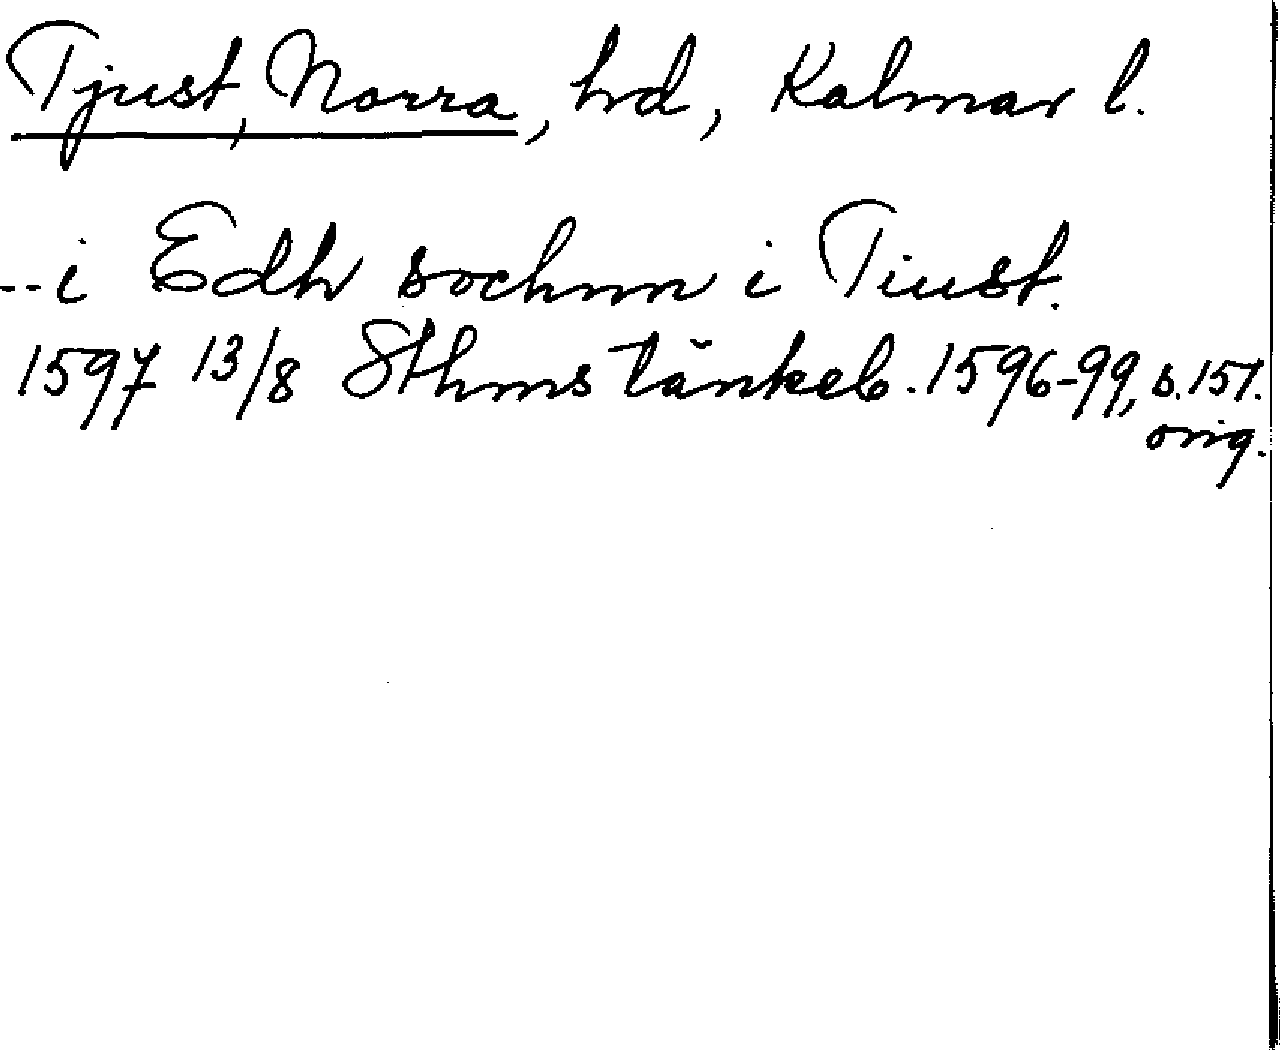 Tjust, Norra, hd, Kalmar l.
--i Edh sochnn i Tiust.
1597 13/8 Sthms tänkeb. 1596-99, s. 157.
orig.